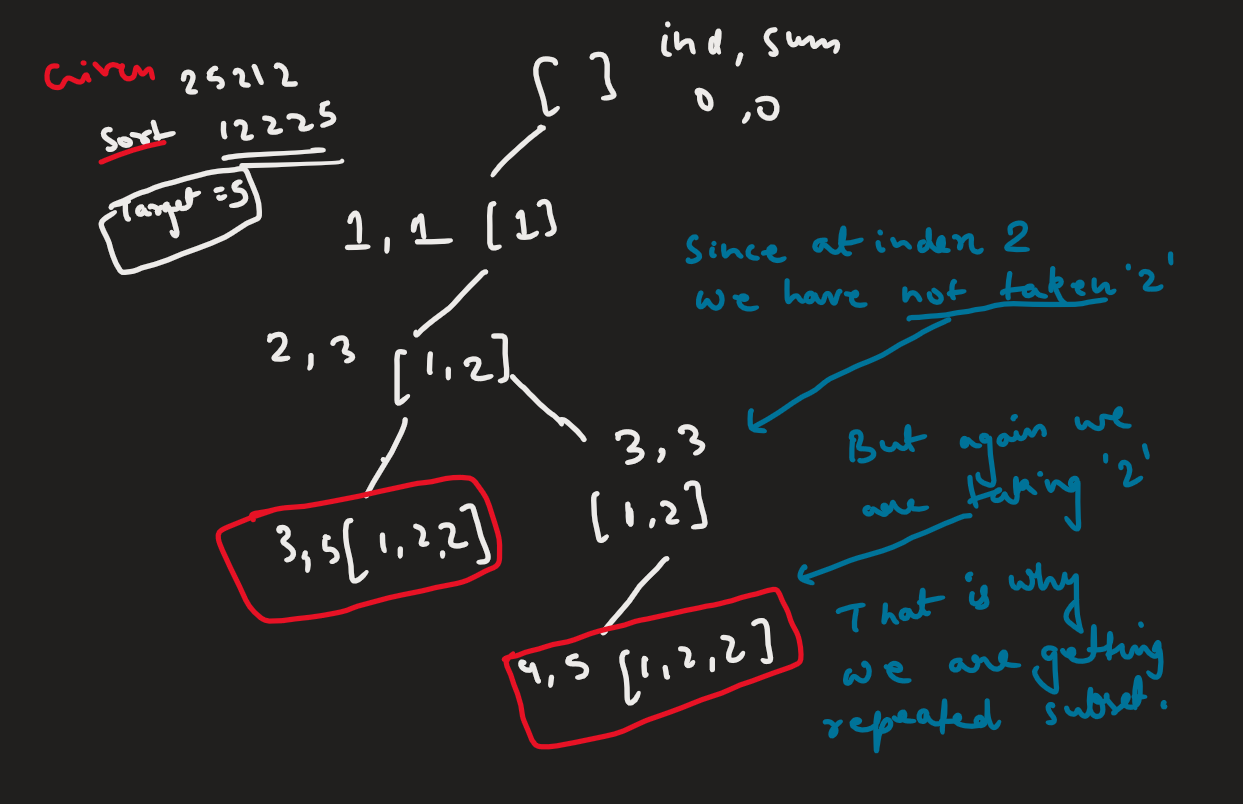 Given 25212
Sort 12225
Target = 5
[ ] ind, sum
0, 0
1, 1 [1]
2, 3 [1,2]
3, 5 [1,2,2]
3, 3
[1,2]
4, 5 [1,2,2]
Since at index 2
we have not taken '2'
But again we
are taking '2'
That is why
we are getting
repeated subset.